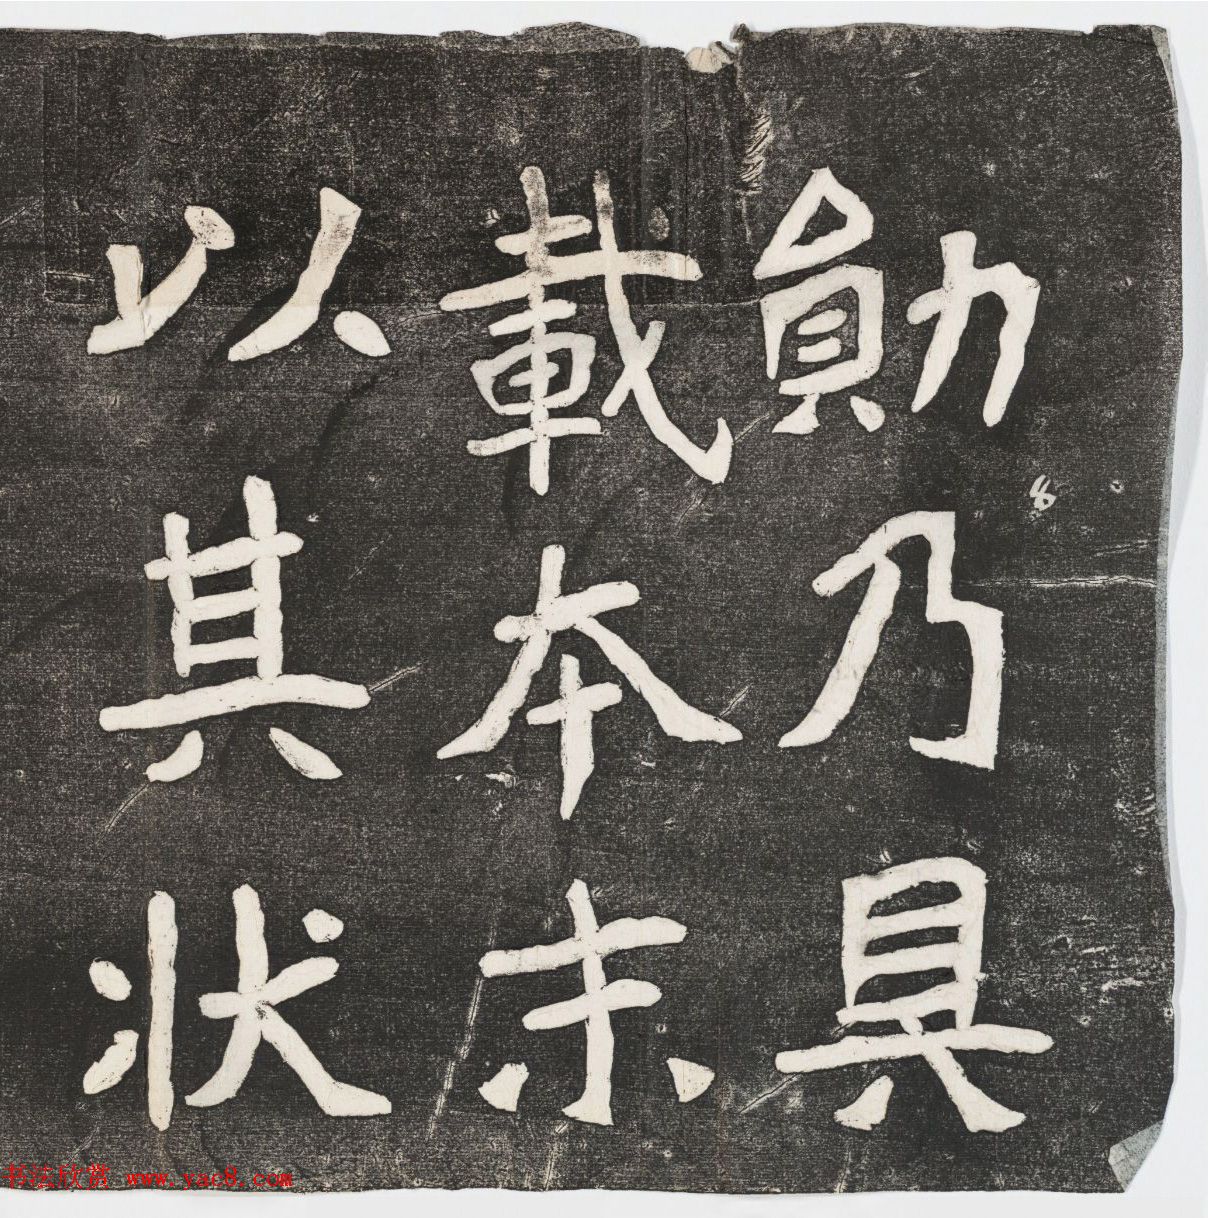 勛乃具
載本末
以其狀
书法欣赏 www.yac8.com